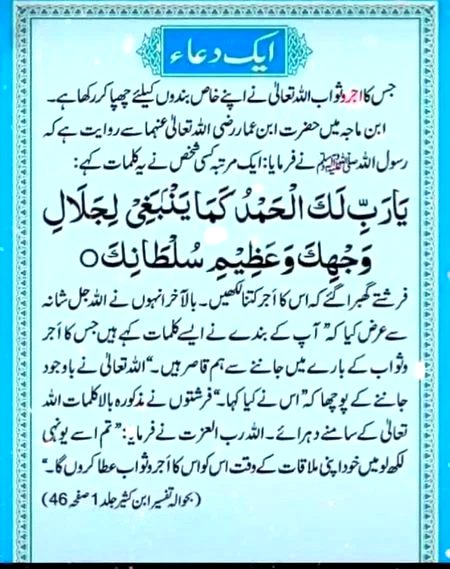 ایک دعاء
جس کا اجر و ثواب اللہ تعالیٰ نے اپنے خاص بندوں کیلئے چھپا کر رکھا ہے۔
ابن ماجہ میں حضرت ابن عمار رضی اللہ تعالیٰ عنہما سے روایت ہے کہ
رسول اللہ ﷺ نے فرمایا: ایک مرتبہ کسی شخص نے یہ کلمات کہے:
يَا رَبِّ لَكَ الْحَمْدُ كَمَا يَنْبَغِيْ لِجَلَالِ
وَجْهِكَ وَعَظِيْمِ سُلْطَانِكَ ○
فرشتے گھبرا گئے کہ اس کا اجر کتنا لکھیں۔ بالآخر انہوں نے اللہ جل شانہ
سے عرض کیا کہ ”آپ کے بندے نے ایسے کلمات کہے ہیں جس کا اجر
و ثواب کے بارے میں جاننے سے ہم قاصر ہیں۔“ اللہ تعالیٰ نے باوجود
جاننے کے پوچھا کہ ”اس نے کیا کہا۔“ فرشتوں نے مذکورہ بالا کلمات اللہ
تعالیٰ کے سامنے دہرائے۔ اللہ رب العزت نے فرمایا: ”تم اسے یونہی
لکھ لو میں خود اپنی ملاقات کے وقت اس کو اس کا اجر و ثواب عطا کروں گا۔“
(بحوالہ تفسیر ابن کثیر جلد 1 صفحہ 46)